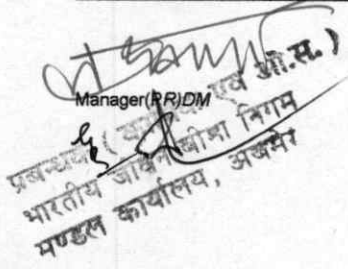 Manager(PR)DM
प्रबन्धक ( एवं ओ.स. )
भारतीय जीवन बीमा निगम
मण्डल कार्यालय, अजमेर